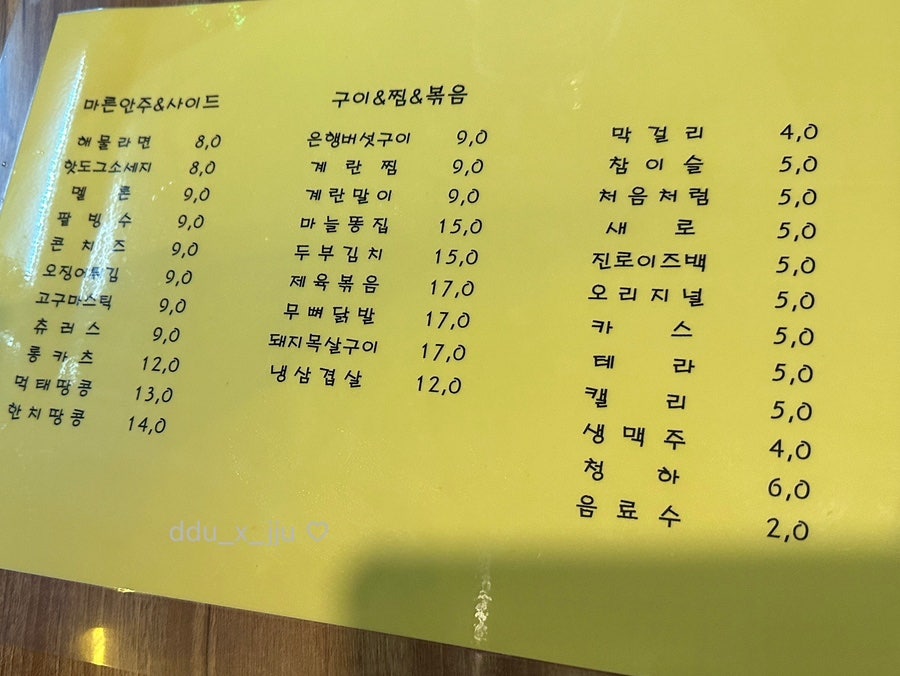 마른안주&사이드
해물라면 8,0
핫도그소세지 8,0
멜론 9,0
팥빙수 9,0
콘치즈 9,0
오징어튀김 9,0
고구마스틱 9,0
츄러스 9,0
롱카츠 12,0
먹태땅콩 13,0
한치땅콩 14,0
구이&찜&볶음
은행버섯구이 9,0
계란찜 9,0
계란말이 9,0
마늘똥집 15,0
두부김치 15,0
제육볶음 17,0
무뼈닭발 17,0
돼지목살구이 17,0
냉삼겹살 12,0
막걸리 4,0
참이슬 5,0
처음처럼 5,0
새로 5,0
진로이즈백 5,0
오리지널 5,0
카스 5,0
테라 5,0
캘리 5,0
생맥주 4,0
청하 6,0
음료수 2,0
ddu_x_jju ♡